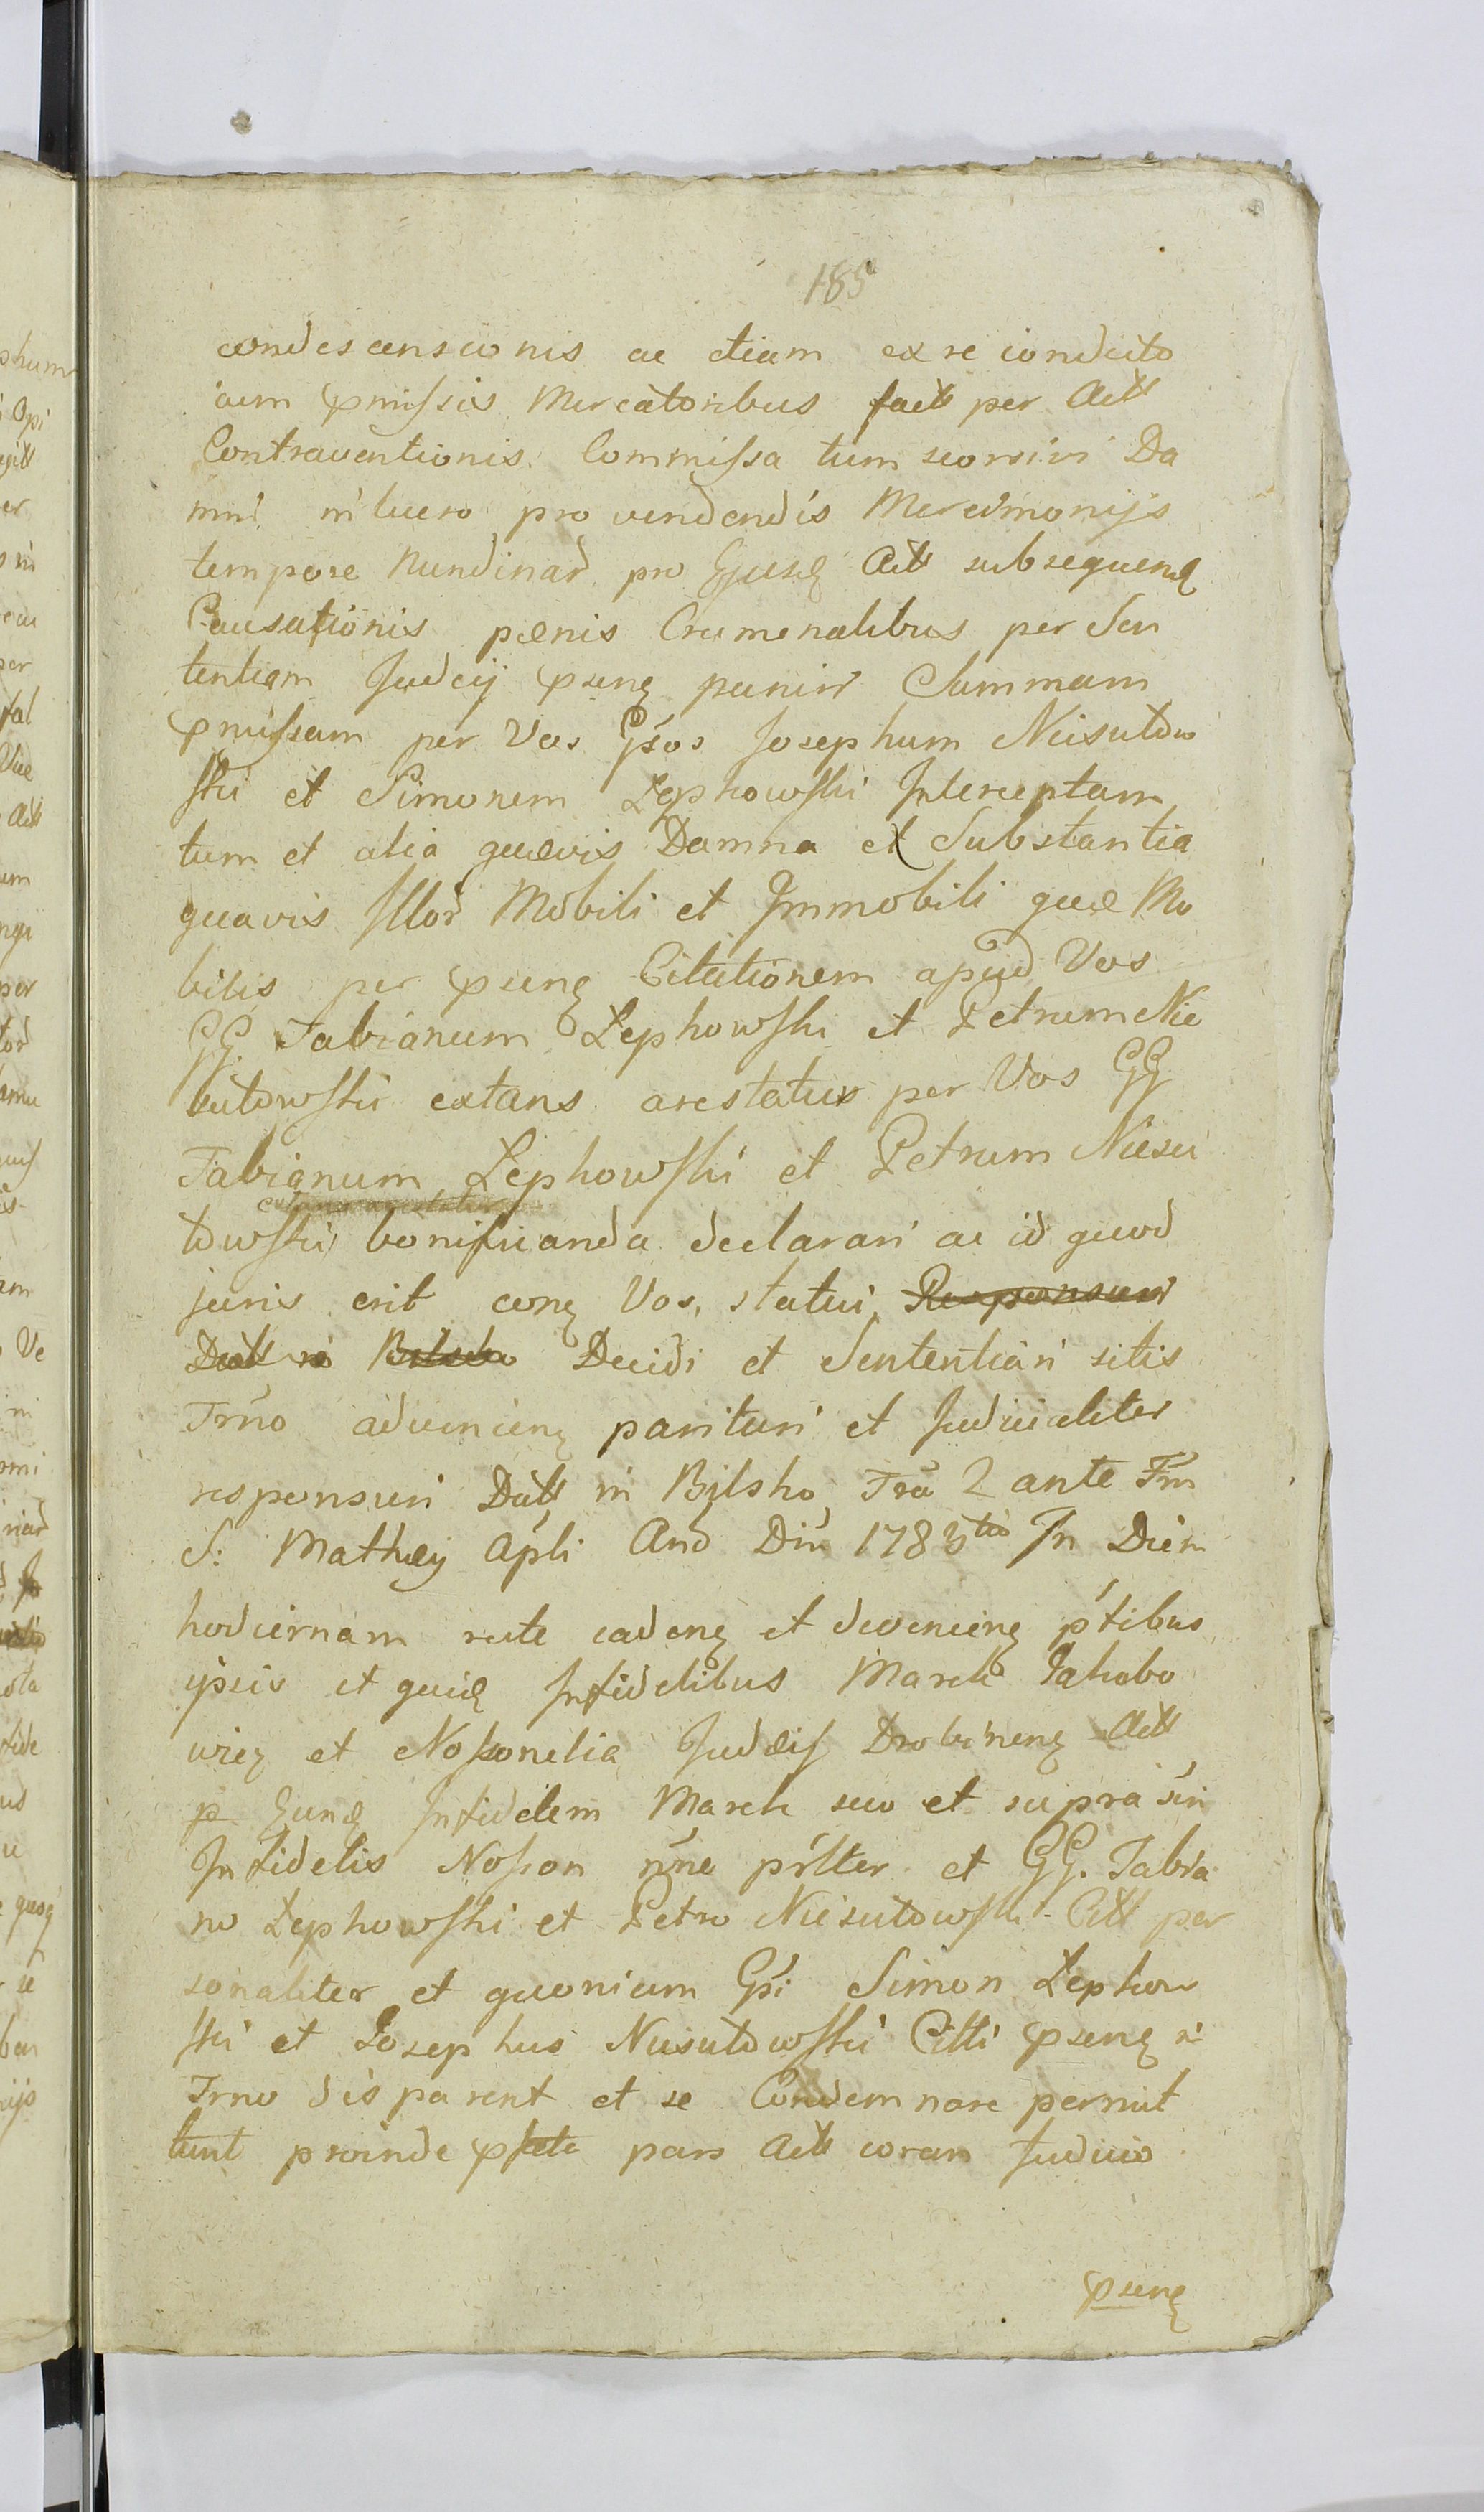 185
condescensionis ac etiam ex re conducto
cum pmissis Mercatoribus fact per Act
Contraventionis Commissa tum seorsivi Da
mni in lucro pro vendendis Mercimonijs
tempore Nundinar pro Ejusq Act subsequenq
Causationis pænis Criminalibus per Sen
tentiam Judicij psenq puniri Summam
pmissam per Vos Gsos Josephum Niesutow
ski et Simonem Lephowski Interceptam
tum et alia quævis Damna et Substantia
quavis Illor Mobili et Immobili quæ Mo
bilis per psenq Citationem apud Vos
GG Fabianum Lephowski et Petrum Nie
sutowski extans arestatur per Vos GG
Fabianum Lephowski et Petrum Niesu
extans arestatur
towski bonificanda declarari ac id quod
juris erit conq Vos, statui, Responsuri
Datt in Bilsko Decidi et Sententiari sitis
Trno advenienq parituri et Judicialiter
responsuri Datt in Bilsko Fra 2 ante Fm
S: Mathæij Apli And Din 1783tio In Diem
hodiernam recte cadenq et devenienq ptibus
ipsis et quidq Infidelibus March Jakobo
wicz et Nossonelia Judæis Drobinenq Act
p Eunq Infidelem March suo et supra sri
Infidelis Nosson nne psltter et GG. Fabia
no Lephowski et Petro Niesutowski Citt per
sonaliter et quoniam Gsi Simon Lephow
ski et Josephus Niesutowski Citti psenq i
Trno disparent et se Condemnare permit
tunt proinde pfata pars Act coram Judicio
psenq